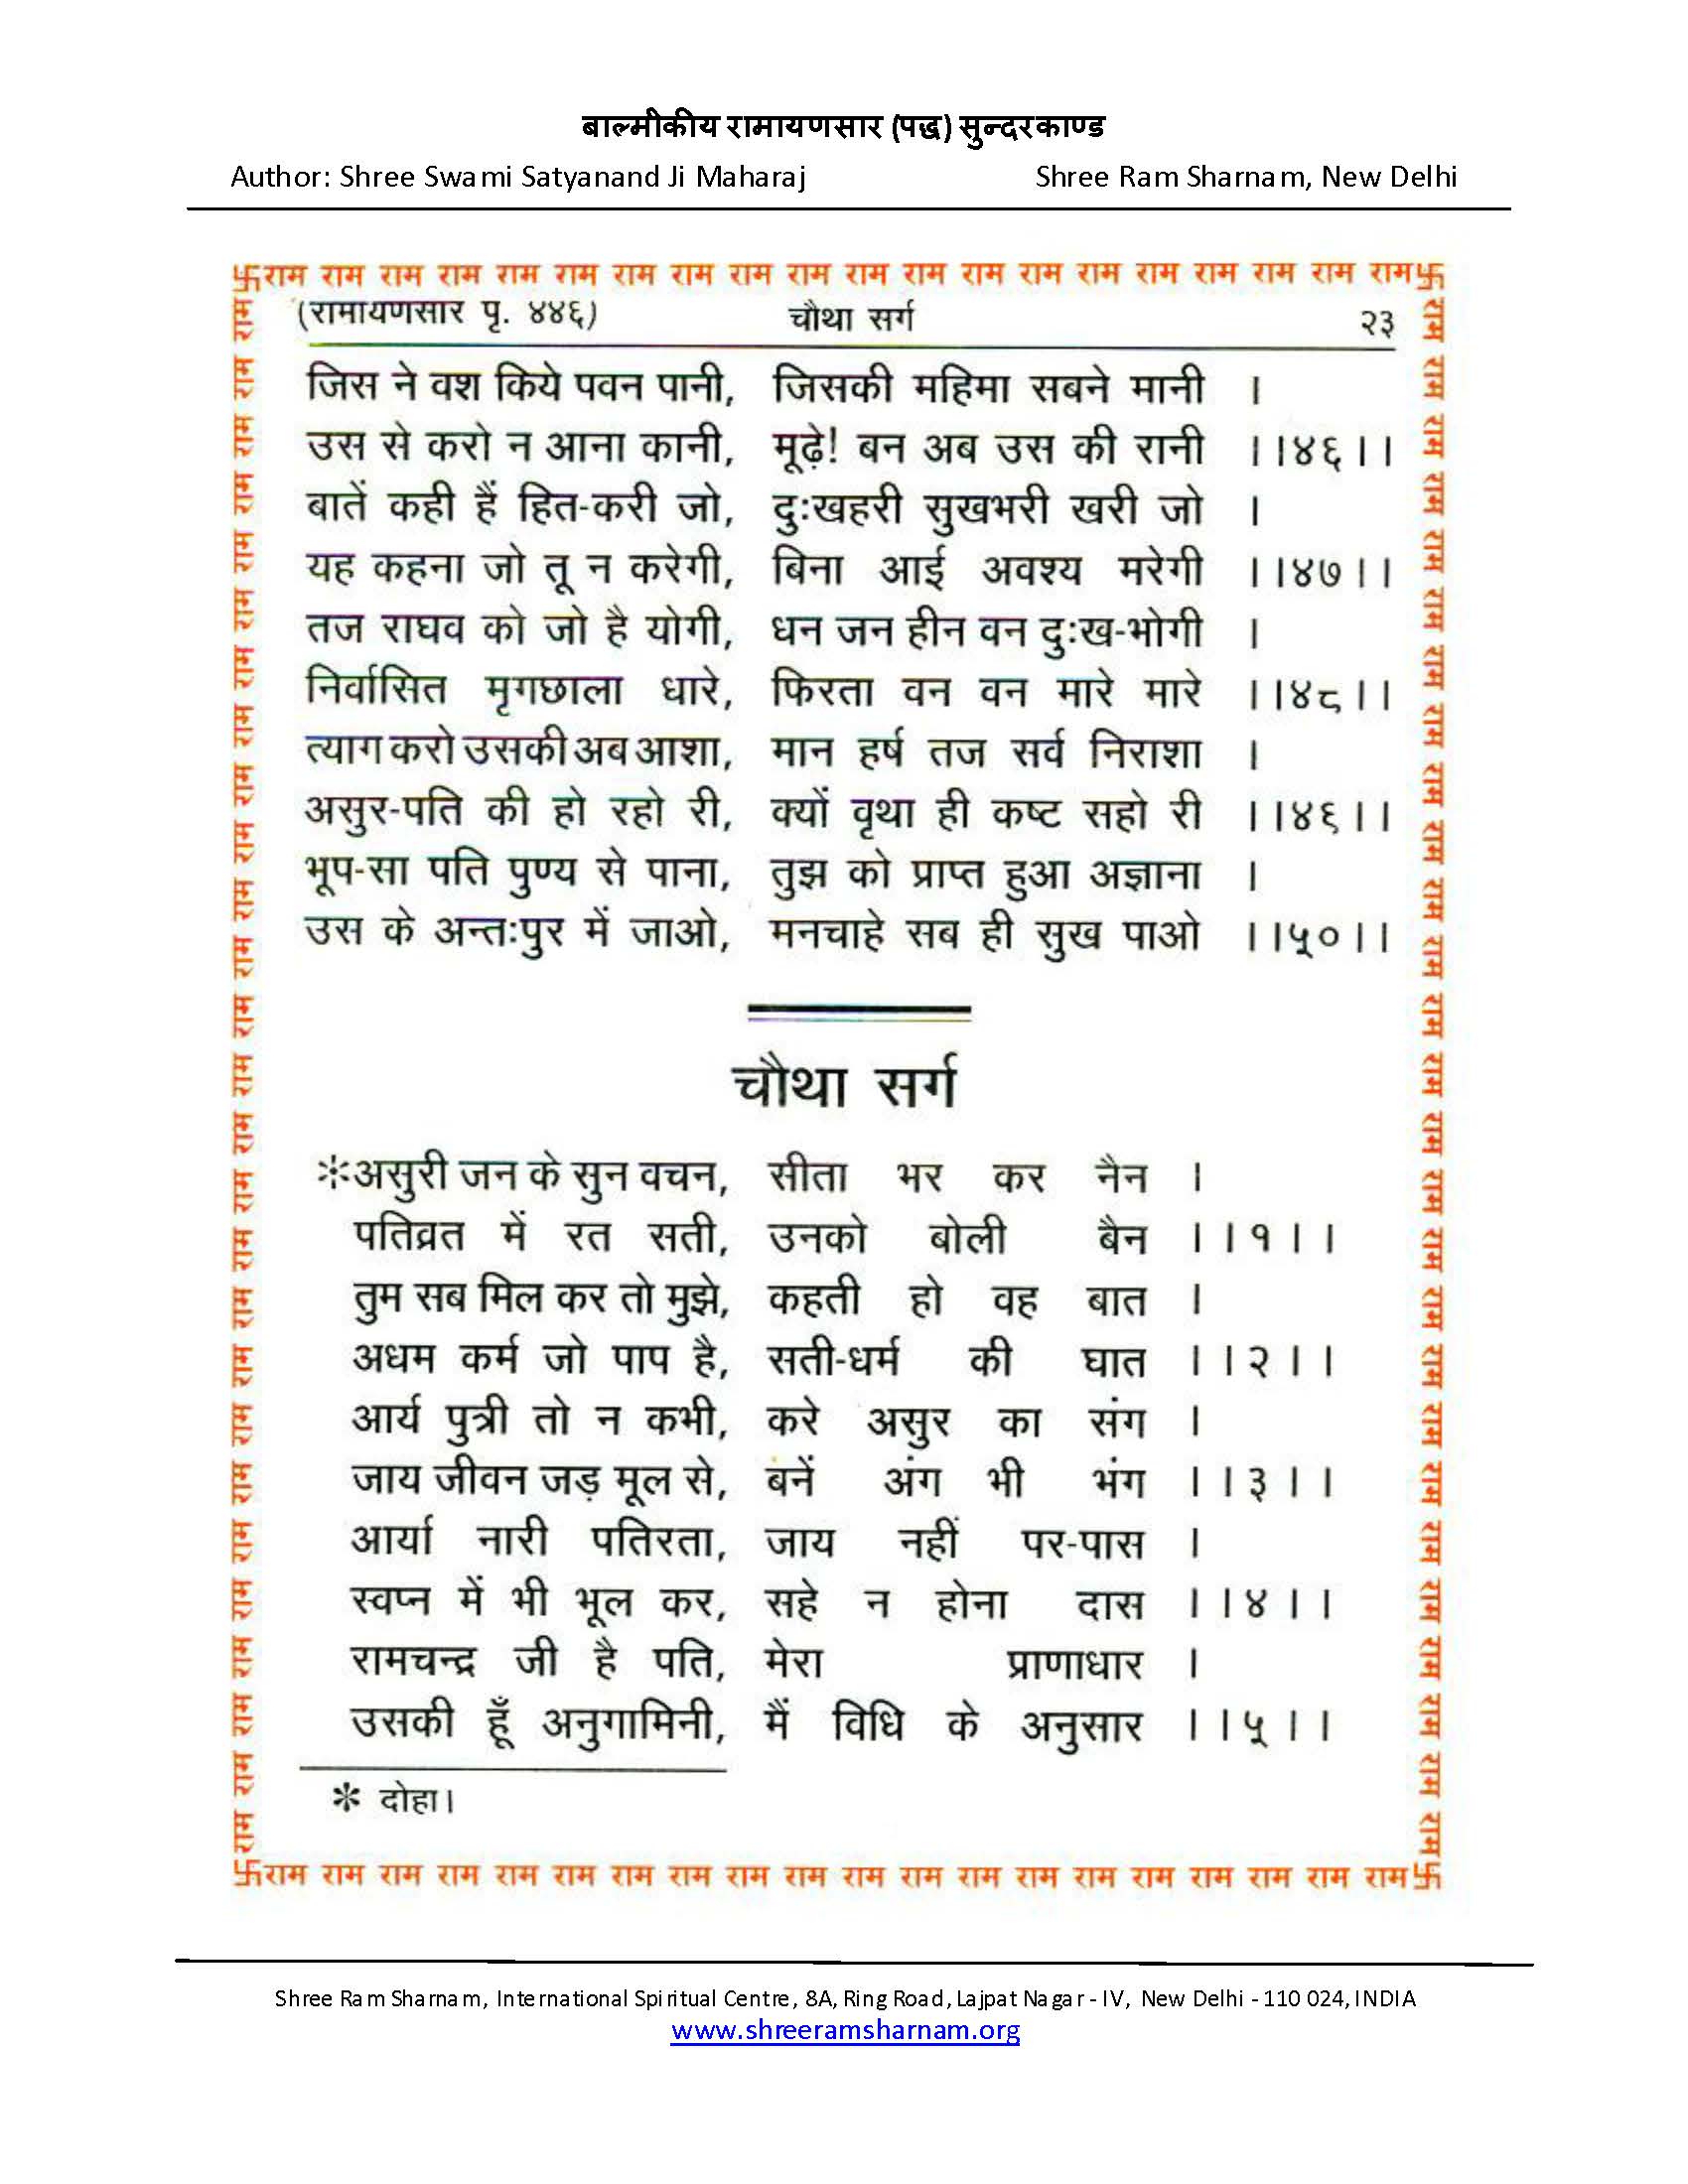 बाल्मीकीय रामायणसार (पद्ध) सुन्दरकाण्ड
Author: Shree Swami Satyanand Ji Maharaj Shree Ram Sharnam, New Delhi
卐राम राम राम राम राम राम राम राम राम राम राम राम राम राम राम राम राम राम राम राम卐
(रामायणसार पृ. ४४६) चौथा सर्ग २३
जिस ने वश किये पवन पानी, जिसकी महिमा सबने मानी ।
उस से करो न आना कानी, मूढ़े! बन अब उस की रानी ।।४६।।
बातें कही हैं हित-करी जो, दुःखहरी सुखभरी खरी जो ।
यह कहना जो तू न करेगी, बिना आई अवश्य मरेगी ।।४७।।
तज राघव को जो है योगी, धन जन हीन वन दुःख-भोगी ।
निर्वासित मृगछाला धारे, फिरता वन वन मारे मारे ।।४८।।
त्याग करो उसकी अब आशा, मान हर्ष तज सर्व निराशा ।
असुर-पति की हो रहो री, क्यों वृथा ही कष्ट सहो री ।।४६।।
भूप-सा पति पुण्य से पाना, तुझ को प्राप्त हुआ अज्ञाना ।
उस के अन्तःपुर में जाओ, मनचाहे सब ही सुख पाओ ।।५०।।
चौथा सर्ग
*असुरी जन के सुन वचन, सीता भर कर नैन ।
पतिव्रत में रत सती, उनको बोली बैन ।।१।।
तुम सब मिल कर तो मुझे, कहती हो वह बात ।
अधम कर्म जो पाप है, सती-धर्म की घात ।।२।।
आर्य पुत्री तो न कभी, करे असुर का संग ।
जाय जीवन जड़ मूल से, बनें अंग भी भंग ।।३।।
आर्या नारी पतिरता, जाय नहीं पर-पास ।
स्वप्न में भी भूल कर, सहे न होना दास ।।४।।
रामचन्द्र जी है पति, मेरा प्राणाधार ।
उसकी हूँ अनुगामिनी, मैं विधि के अनुसार ।।५।।
* दोहा।
卐राम राम राम राम राम राम राम राम राम राम राम राम राम राम राम राम राम राम राम राम卐
Shree Ram Sharnam, International Spiritual Centre, 8A, Ring Road, Lajpat Nagar - IV, New Delhi - 110 024, INDIA
www.shreeramsharnam.org